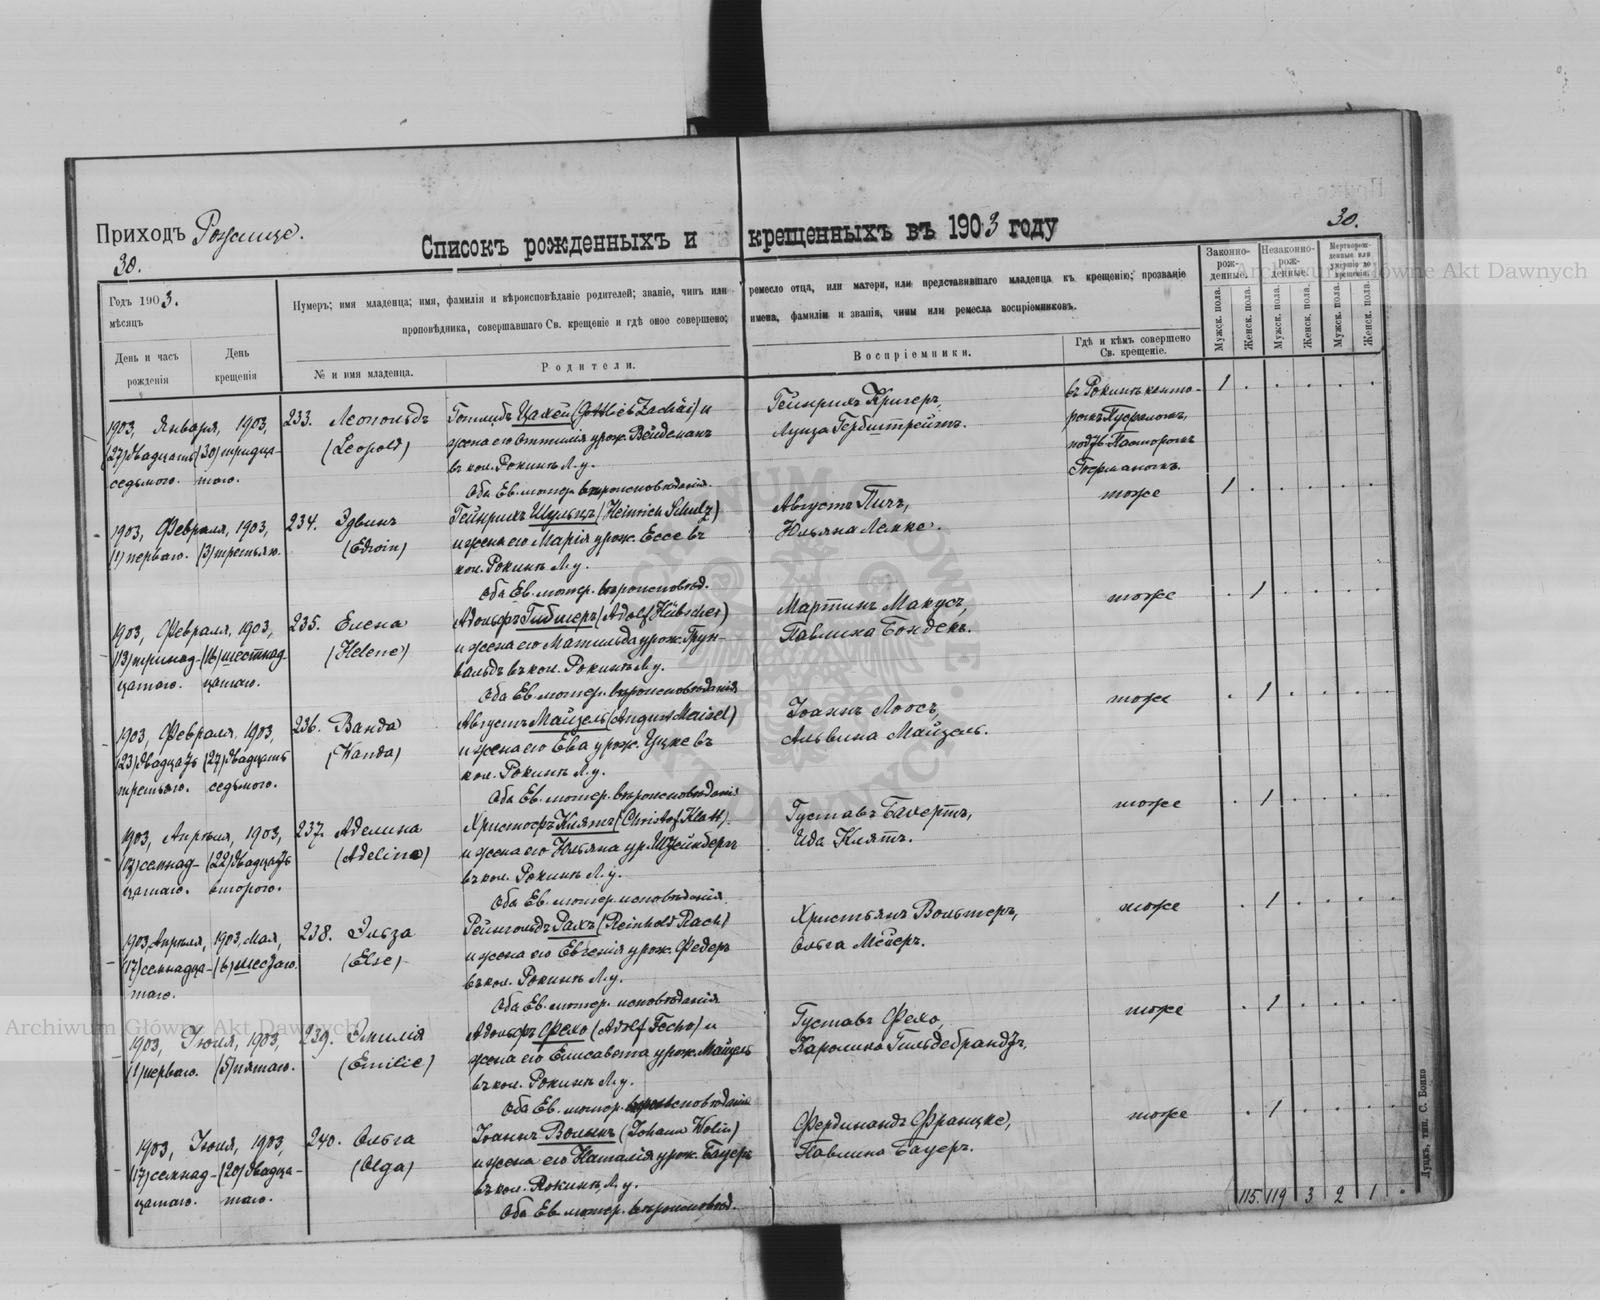 Приходъ Рожище.
30.
Списокъ рожденныхъ и крещенныхъ въ 1903 году
30.
Годъ 1903.
мѣсяцъ
День и часъ рожденія
День крещенія
Нумеръ; имя младенца; имя, фамилія и вѣроисповѣданіе родителей; званіе, чинъ или ремесло отца, или матери, или представившаго младенца къ крещенію; прозваніе
проповѣдника, совершавшаго Св. крещеніе и гдѣ оное совершено; имена, фамиліи и званія, чины или ремесла воспріемниковъ.
№ и имя младенца.
Родители.
Воспріемники.
Гдѣ и кѣмъ совершено Св. крещеніе.
Законно-рож-денные.
Незаконно-рож-денные.
Мертворож-денные или умершіе до крещенія.
Мужск. пола.
Женск. пола.
Мужск. пола.
Женск. пола.
Мужск. пола.
Женск. пола.
1903, Января, 1903,
(27) двадцать (30) тридца-
седьмого. таго.
233. Леопольдъ
(Leopold)
Готлибъ Цахей (Gottlieb Zachäi) и
жена его Оттилія урож. Вейдеманъ
въ кол. Рокинь Л. у.
Оба Ев. лютер. вѣроисповѣданія.
Гейнрихъ Кригеръ,
Луиза Гербштрейтъ.
въ Рокинь канто-
ромъ
подтв. Пасторомъ
1
1903, Февраля, 1903,
(1) перваго. (3) третьяго.
234. Эдвинъ
(Edwin)
Гейнрихъ Шульцъ (Heinrich Schulz)
и жена его Марія урож. Ессе въ
кол. Рокинь Л. у.
Оба Ев. лютер. вѣроисповѣд.
Августъ Пичъ,
Юльяна Лемке.
тоже
1
1903, Февраля, 1903,
(13) тринад- (16) шестнад-
цатаго. цатаго.
235. Елена
(Helene)
Адольфъ Гибшеръ (Adolf Hübscher)
и жена его Матильда урож. Грун-
вальдъ въ кол. Рокинь Л. у.
Оба Ев. лютер. вѣроисповѣданія
Мартинъ Макусъ,
Павлина Бондекъ.
тоже
1
1903, Февраля, 1903,
(23) двадцать (27) двадцать
третьяго. седьмого.
236. Ванда
(Wanda)
Августъ Майзель (August Meisel)
и жена его Ева урож. Уцке въ
кол. Рокинь Л. у.
Оба Ев. лютер. вѣроисповѣданія
Іоаннъ Лоосъ,
Альвина Майзель.
тоже
1
1903, Апрѣля, 1903,
(17) семнад- (22) двадцать
цатаго. второго.
237. Аделина
(Adeline)
Христофъ Клятъ (Christof Klatt)
и жена его Юльяна ур. Штейнбергъ
въ кол. Рокинь Л. у.
Оба Ев. лютер. исповѣданія.
Густавъ Бахертъ,
Ида Клятъ.
тоже
1
1903, Апрѣля, 1903, Мая,
(17) семнадца- (6) шестаго.
таго.
238. Эльза
(Else)
Рейнгольдъ Рахъ (Reinhold Rach)
и жена его Евгенія урож. Федеръ
въ кол. Рокинь Л. у.
Оба Ев. лютер. исповѣданія
Христьянъ Вольтеръ,
Ольга Мейеръ.
тоже
1
1903, Іюля, 1903,
(1) перваго. (5) пятаго.
239. Эмилія
(Emilie)
Адольфъ Фехо (Adolf Fecho) и
жена его Елисавета урож. Майзель
въ кол. Рокинь Л. у.
Оба Ев. лютер. вѣроисповѣданія
Густавъ Фехо,
Каролина Гильдебрандтъ.
тоже
1
1903, Іюля, 1903,
(17) семнад- (20) двадца-
цатаго. таго.
240. Ольга
(Olga)
Іоаннъ Вольинъ (Johann Wolin)
и жена его Наталія урож. Бауеръ
въ кол. Рокинь Л. у.
Оба Ев. лютер. вѣроисповѣд.
Фердинандъ Францке,
Павлина Бауеръ.
тоже
1
115. 119 3 2 1 .
Луцкъ, тип. С. Бонко
Archiwum Główne Akt Dawnych
Archiwum Główne Akt Dawnych